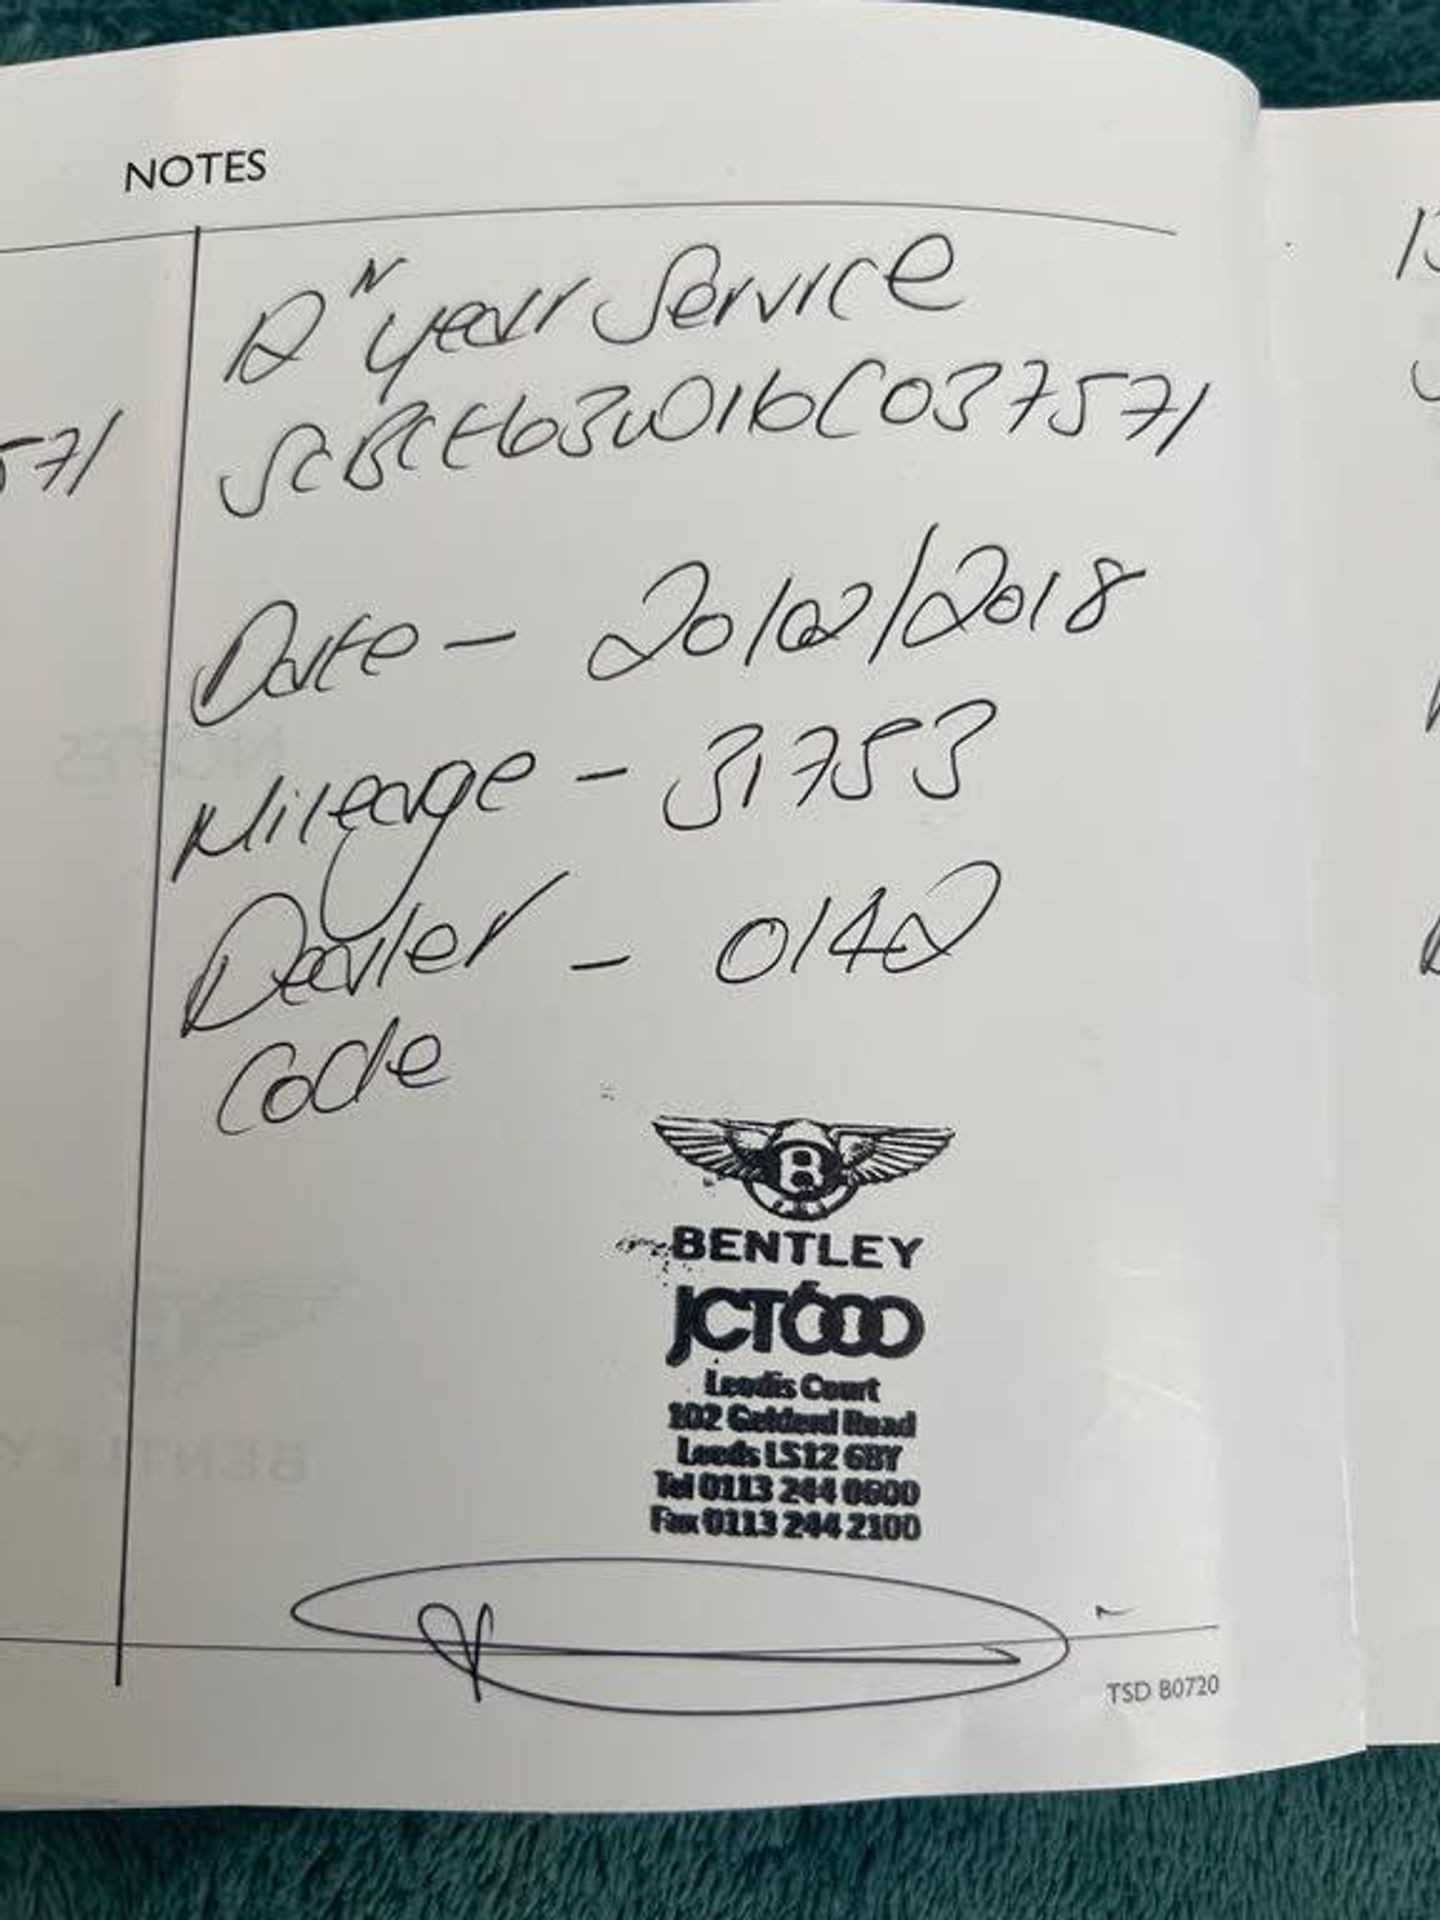 NOTES
12" year Service
SCBCE63W016C037571
571
Date - 20/02/2018
Mileage - 31753
Dealer - 0142
Code
B
BENTLEY
JCT600
Leodis Court
102 Gelderd Road
Leeds LS12 6BY
Tel 0113 244 0600
Fax 0113 244 2100
TSD B0720
13